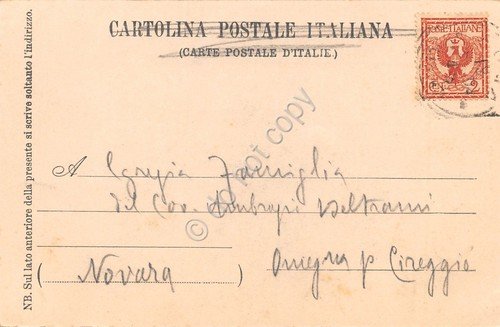 CARTOLINA POSTALE ITALIANA
(CARTE POSTALE D'ITALIE.)
POSTE ITALIANE
2
NB. Sul lato anteriore della presente si scrive soltanto l'indirizzo.
A Egregia Famiglia
del Cav. Beltrami
(Novara) Omegna p Cireggio
© do not copy